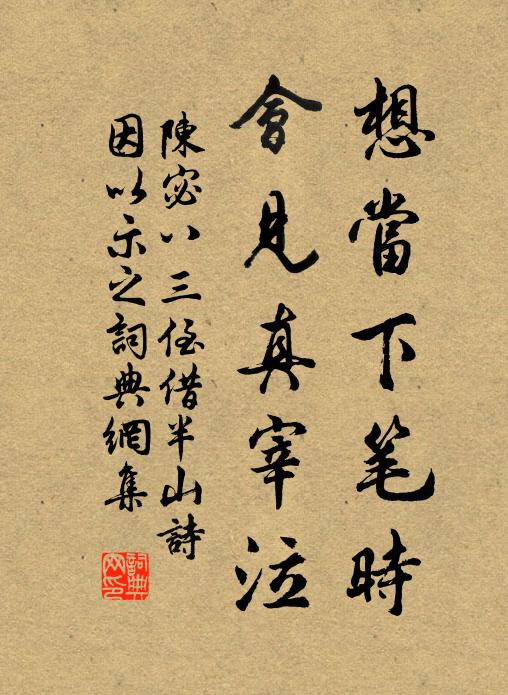 想當下笔時
會見真宰泣
陳宓八三侄借半山詩
因以示之詞典網集
詞典網印